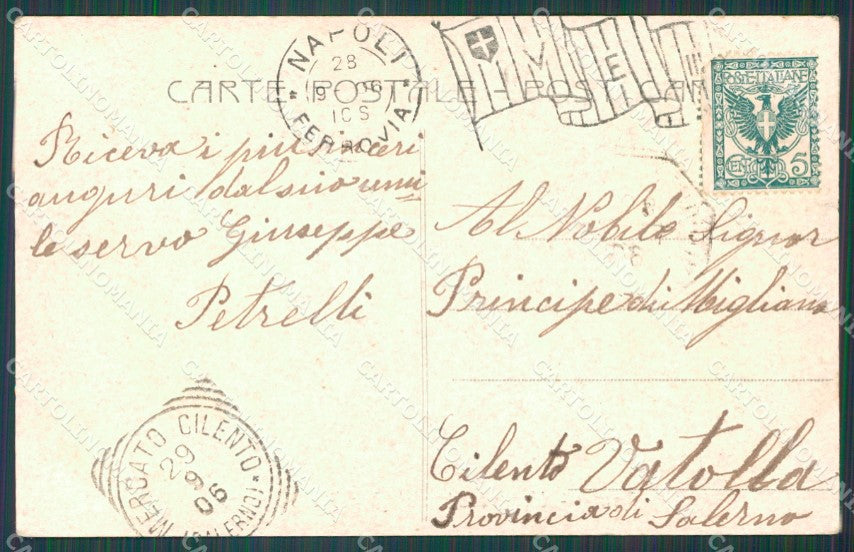 NAPOLI
28
9 06
10S
* FERROVIA *
CARTE POSTALE - POST CA
V E
POSTE ITALIANE
CENT. 5
Riceva i più sinceri
auguri dal suo umi-
le servo Giuseppe
Petrelli
Al Nobile Signor
Principe di Migliano
Cilento Vatolla
Provincia di Salerno
MERCATO CILENTO
29
9
06
* (SALERNO) *
CARTOLINOMANIA